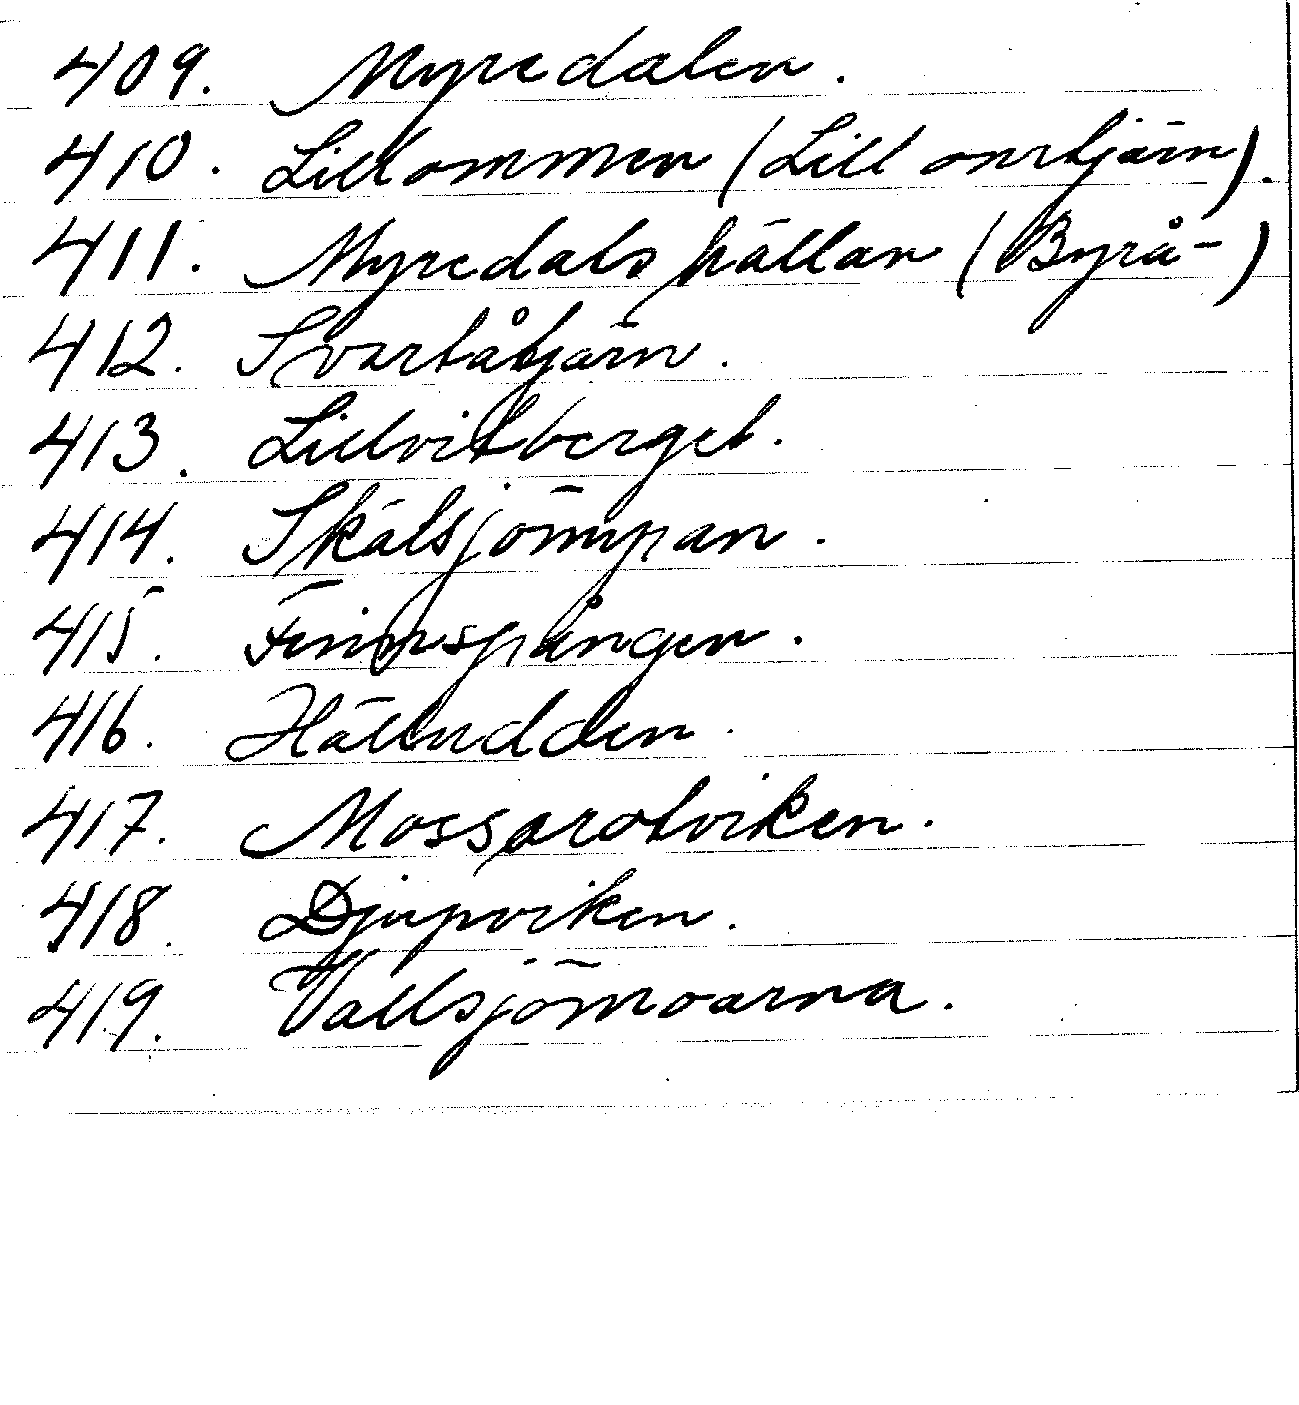 409. Myredalen.
410. Lillommen (Lill omtjärn).
411. Myredalshällan (Byrå-)
412. Svartåtjärn.
413. Lillvitberget.
414. Skälsjömyran.
415. Finnspången.
416. Hälludden.
417. Mossarotviken.
418. Djupviken.
419. Vallsjömoarna.